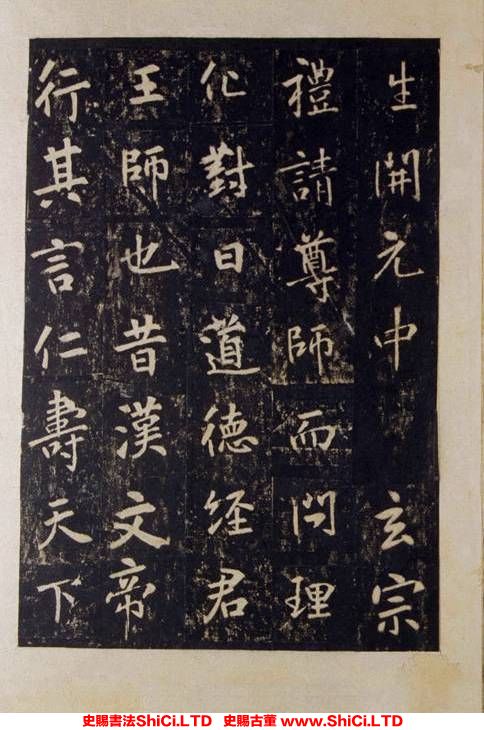 生開元中玄宗
禮請尊師而問理
化對曰道德經君
王師也昔漢文帝
行其言仁壽天下
史賜書法ShiCi.LTD 史賜古董 www.ShiCi.LTD